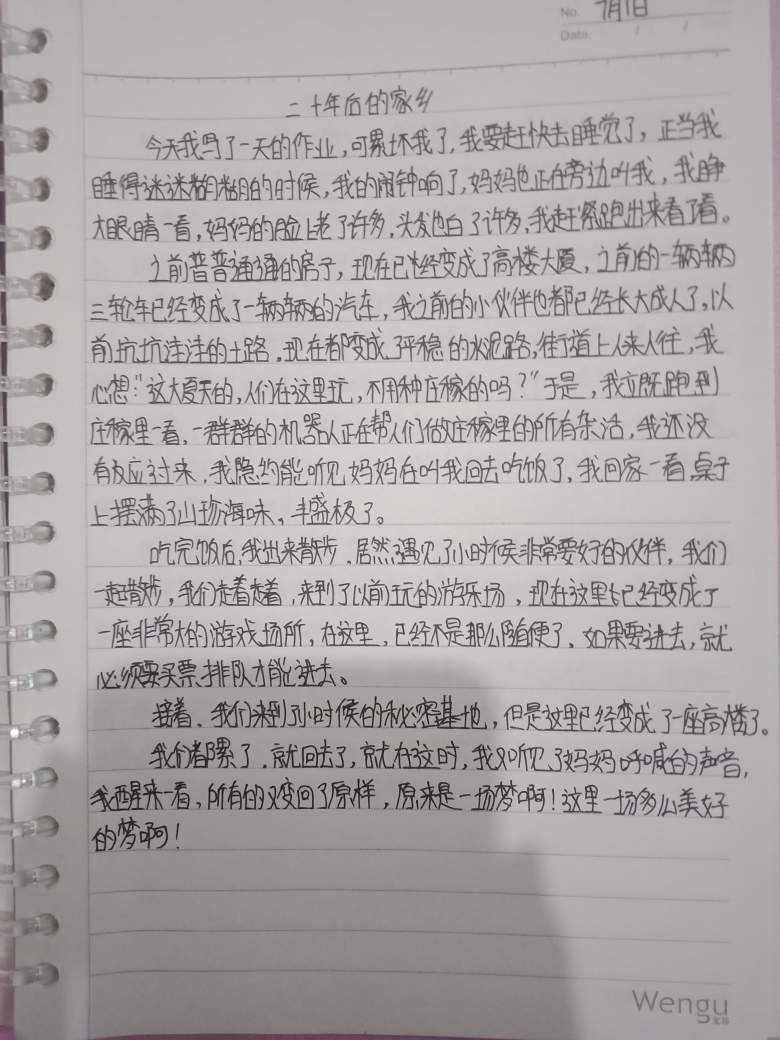 No. 7月1日
Date. / /
二十年后的家乡
今天我写了一天的作业，可累坏我了，我要赶快去睡觉了，正当我
睡得迷迷糊糊的时候，我的闹钟响了，妈妈也正在旁边叫我，我睁
大眼睛一看，妈妈的脸上老了许多，头发也白了许多，我赶紧跑出来看了看。
之前普普通通的房子，现在已经变成了高楼大厦，之前的一辆辆
三轮车已经变成了一辆辆的汽车，我之前的小伙伴也都已经长大成人了，以
前坑坑洼洼的土路，现在都变成了平稳的水泥路，街道上人来人往，我
心想："这大夏天的，人们在这里玩，不用种庄稼的吗？"于是，我立既跑到
庄稼里一看，一群群的机器人正在帮人们做庄稼里的所有杂活，我还没
有反应过来，我隐约能听见妈妈在叫我回去吃饭了，我回家一看，桌子
上摆满了山珍海味，丰盛极了。
吃完饭后，我出来散步，居然遇见了小时候非常要好的伙伴，我们
一起散步，我们走着走着，来到了以前玩的游乐场，现在这里已经变成了
一座非常大的游戏场所，在这里，已经不是那么随便了，如果要进去，就
必须要买票，排队才能进去。
接着，我们来到了小时候的秘密基地，但是这里已经变成了一座高楼了。
我们都累了，就回去了，就在这时，我又听见了妈妈呼喊的声音，
我醒来一看，所有的又变回了原样，原来是一场梦啊！这里一场多么美好
的梦啊！
Wengu